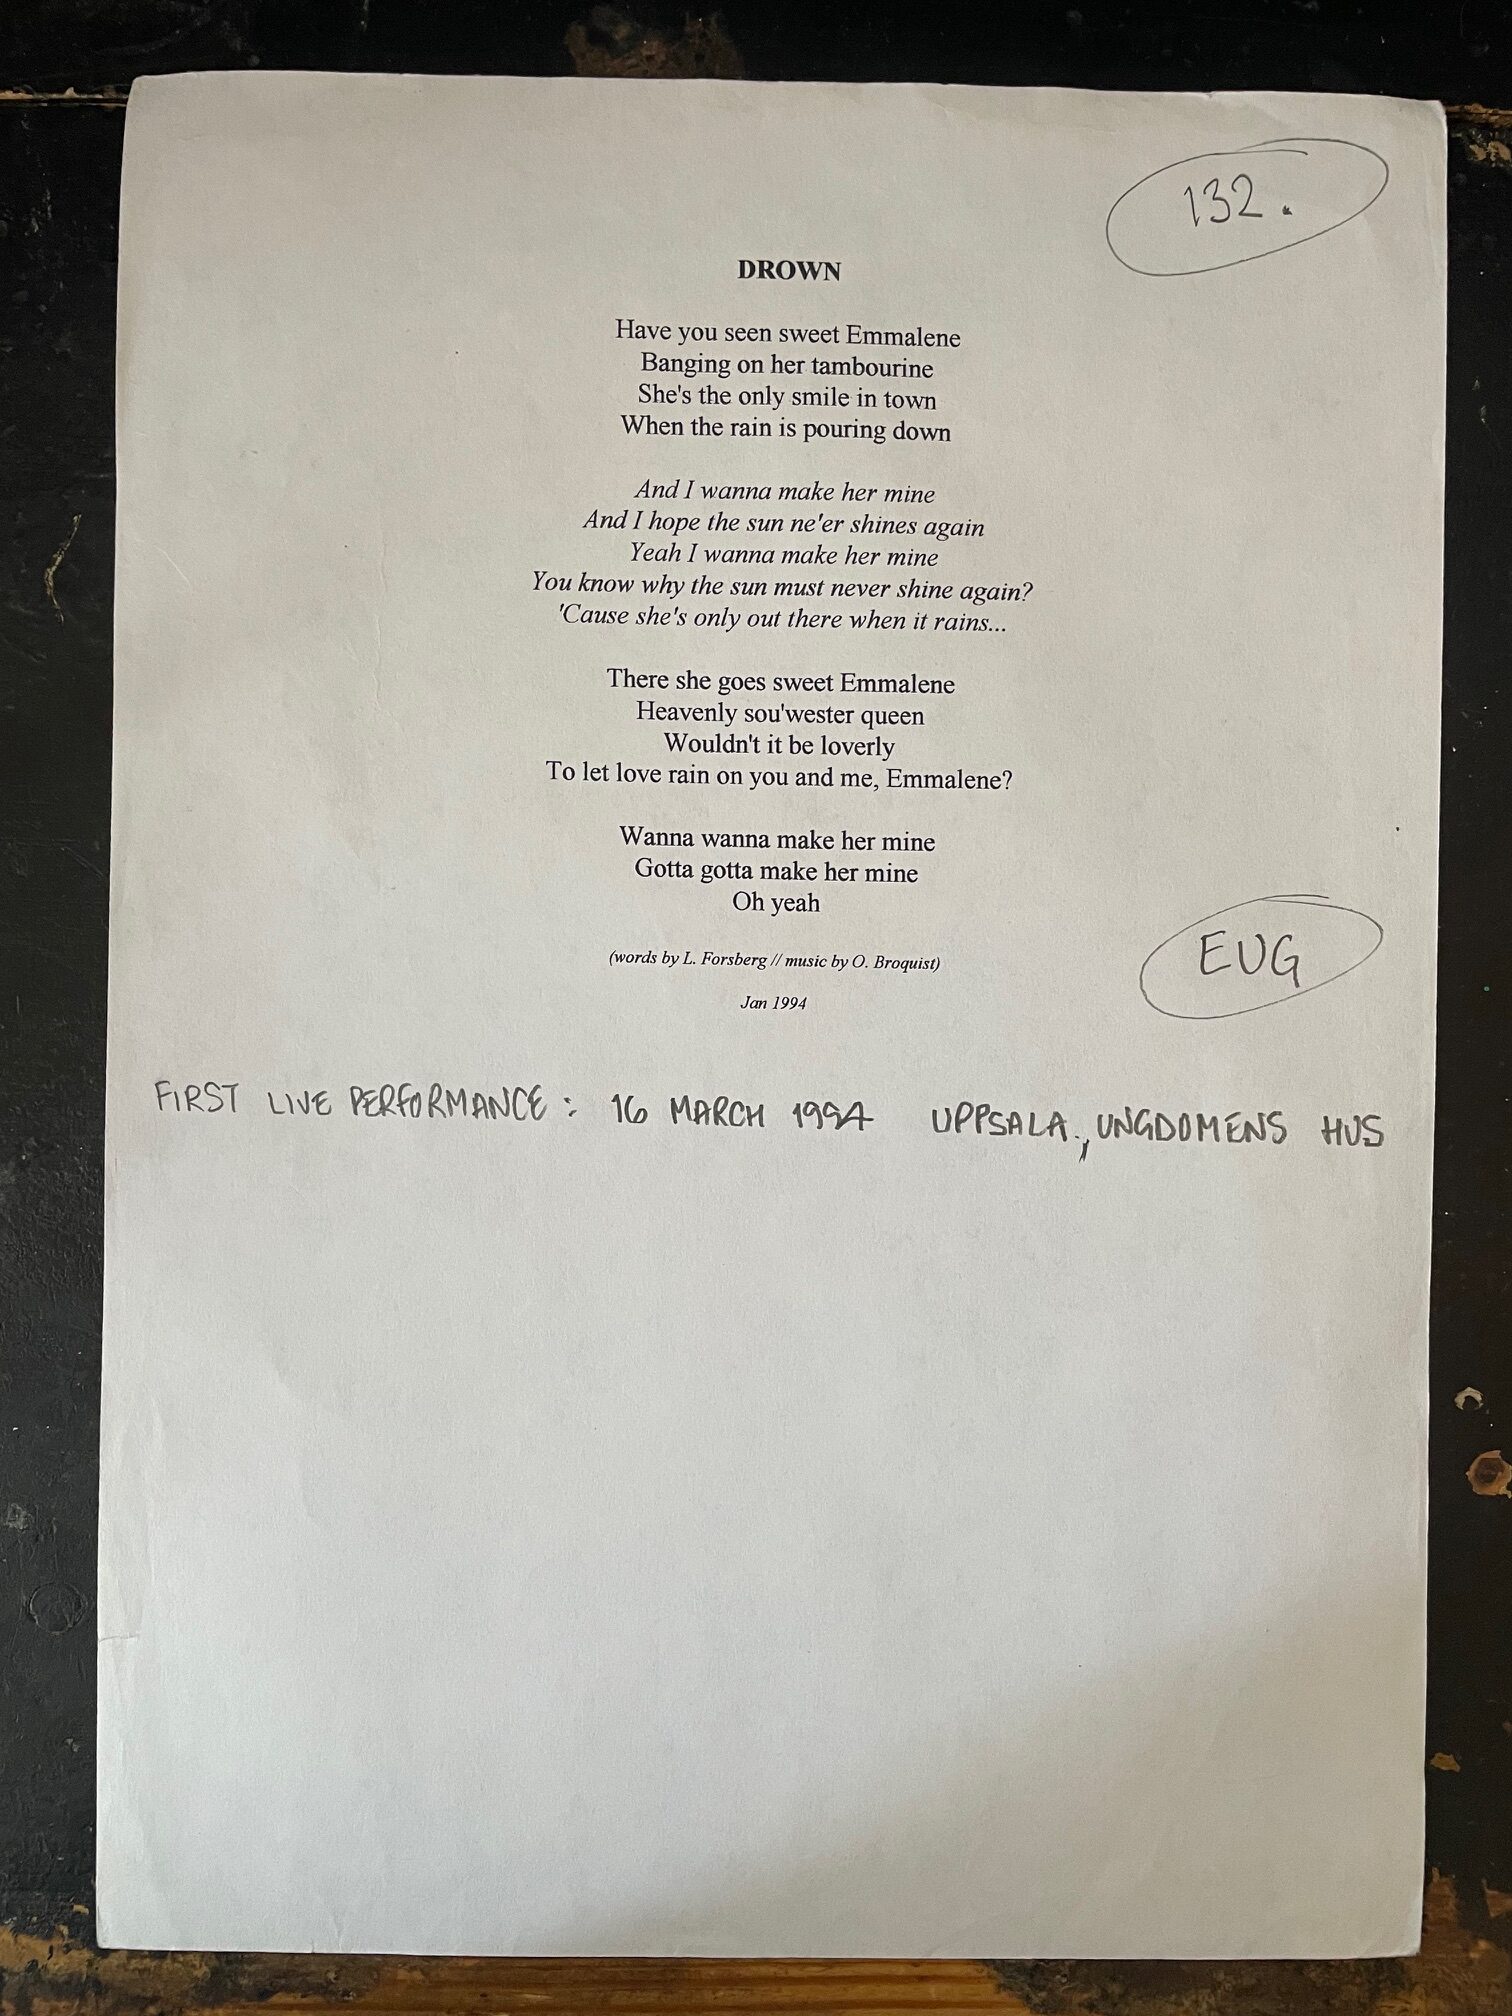 132.
DROWN
Have you seen sweet Emmalene
Banging on her tambourine
She's the only smile in town
When the rain is pouring down
And I wanna make her mine
And I hope the sun ne'er shines again
Yeah I wanna make her mine
You know why the sun must never shine again?
'Cause she's only out there when it rains...
There she goes sweet Emmalene
Heavenly sou'wester queen
Wouldn't it be loverly
To let love rain on you and me, Emmalene?
Wanna wanna make her mine
Gotta gotta make her mine
Oh yeah
(words by L. Forsberg // music by O. Broquist)
EUG
Jan 1994
FIRST LIVE PERFORMANCE: 16 MARCH 1994 UPPSALA., UNGDOMENS HUS